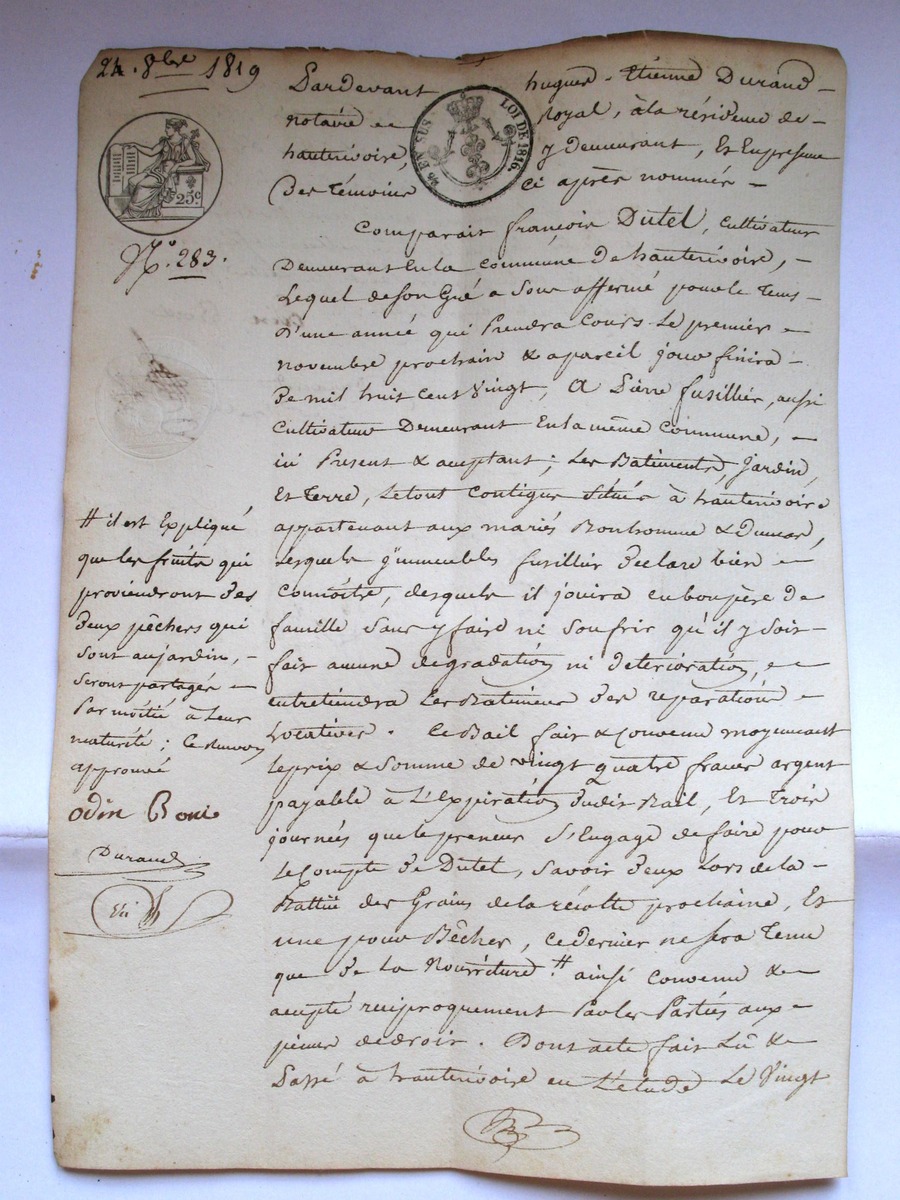 24. 8bre 1819
25c
EN SUS LOI DE 1816.
N.° 283.
Pardevant hugues-Etienne Durand
notaire royal, à la résidence de
hauterivoire, y Demeurant, Et En presence
Des témoins ci après nommés
Comparait françois Dutel, cultivateur
Demeurant En la commune De hauterivoire,
Lequel de son Gré a Sous afferme pour le tems
D'une année qui Prendra Cours Le premier
novembre prochain & a pareil jour finira
De mil huit cent Vingt, A Pierre fusillier, aussi
Cultivateur Demeurant En la même Commune,
ici Present & acceptant; Les Batiments, Jardin,
Et Terre, Le tout Contigus Situés à hauterivoire
appartenant aux mariés Bonhomme & Dumas,
Lesquels immeubles fusillier Declare bien
Connoître, desquels il jouira en bon père De
famille Sans y faire ni Soufrir qu'il y Soit
fait aucune degradation ni deterioration,
entretiendra Les Batimens Des reparations
Locatives. Ce Bail fait & Convenu moyennant
Le prix & Somme de vingt quatre francs argent
payable à L'Expiration Dudit Bail, Et Trois
journées que Le preneur S'Engage de faire pour
Le Compte De Dutel, Savoir Deux Lors de la
Battue des Grains de la récolte prochaine, Et
une pour Bêcher, ce dernier ne sera Tenu
que De La Nourriture # ainsi Convenu &
accepté reciproquement Par Les Parties aux
peines de droit. Dont acte fait Lû &
Passé à hauterivoire en L'étude Le Vingt
# il est Expliqué
que les fruits qui
proviendront Des
Deux pêchers qui
Sont au jardin,
Seront partagés
Par moitié à Leur
maturité; Ce renvoy
approuvé
odin Boni
Durand